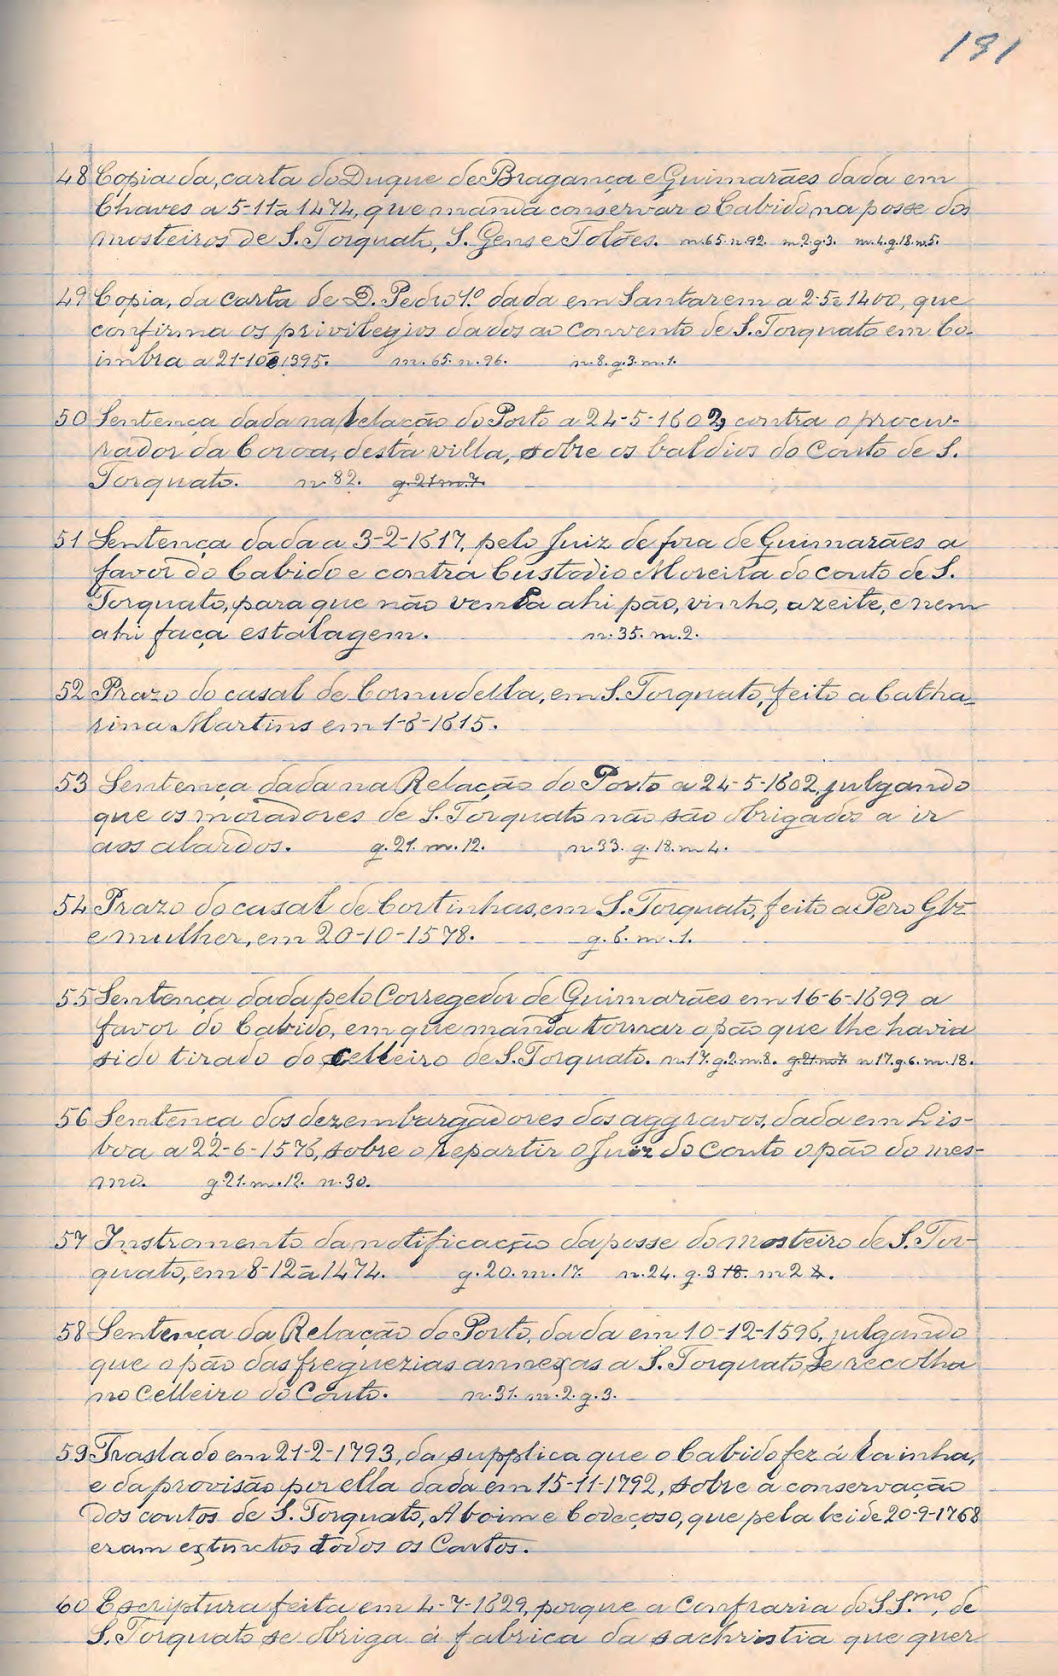 191
48 Copia da carta do Duque de Bragança e Guimarães dada em
Chaves a 5-11ª 1474, que manda conservar o Cabido na posse dos
mosteiros de S. Torquato, S. Gens e Tolões. m.65. n.92. m.2. g.3. m.4. g.18. n.5.
49 Copia, da carta de D. Pedro 1.º dada em Santarem a 2-5ª 1400, que
confirma os privilegios dados ao convento de S. Torquato em Co-
imbra a 21-10ª 1395. m.65. n.96. n.8. g.3. m.1.
50 Sentença dada na Relação do Porto a 24-5-1602, contra o procu-
rador da Coroa, desta villa, sobre os baldios do Couto de S.
Torquato. n.82. g.21 m.7.
51 Sentença dada a 3-2-1617, pelo Juiz de fora de Guimarães a
favor do Cabido e contra Custodio Moreira do couto de S.
Torquato, para que não venda ahi pão, vinho, azeite, e nem
ahi faça estalagem. n.35. m.2.
52 Prazo do casal de Cornudella, em S. Torquato, feito a Catha-
rina Martins em 1-6-1615.
53 Sentença dada na Relação do Porto a 24-5-1602, julgando
que os moradores de S. Torquato não são obrigados a ir
aos alardos. g.21. m.12. n.33. g.18. m.4.
54 Prazo do casal de Cortinhas, em S. Torquato, feito a Pero Glz
e mulher, em 20-10-1578. g.6. m.1.
55 Sentença dada pelo Corregedor de Guimarães em 16-6-1699 a
favor do Cabido, em que manda tornar o pão que lhe havia
sido tirado do celleiro de S. Torquato. n.17. g.2. m.8. g.21 m.7 n.17. g.6. m.18.
56 Sentença dos dezembargadores dos aggravos, dada em Lis-
boa a 22-6-1576, sobre o repartir o Juiz do Couto o pão do mes-
mo. g.21. m.12. n.30.
57 Instromento da notificação da posse do mosteiro de S. Tor-
quato, em 8-12ª 1474. g.20. m.17. n.24. g.3 18. m 2 4.
58 Sentença da Relação do Porto, dada em 10-12-1596, julgando
que o pão das freguezias annexas a S. Torquato se recolha
no celleiro do Couto. n.31. m.2. g.3.
59 Traslado em 21-2-1793, da supplica que o Cabido fez á Rainha,
e da provisão por ella dada em 15-11-1792, sobre a conservação
dos coutos de S. Torquato, Aboim e Codeçoso, que pela lei de 20-9-1768
eram extinctos todos os Coutos.
60 Escriptura feita em 4-7-1629, porque a Confraria do S.S.mo, de
S. Torquato se obriga á fabrica da sachristia que quer